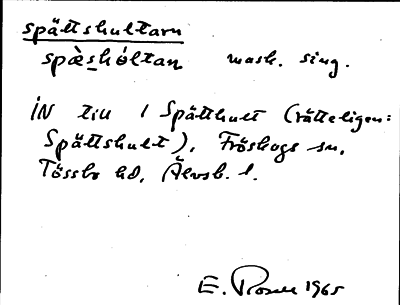 spättshultarn
spæ̀shól̄tan mask. sing.
IN till 1 Spätthult (rätteligen:
Spättshult), Fröskogs sn,
Tössbo hd, Älvsb. l.
E. Rosell 1965